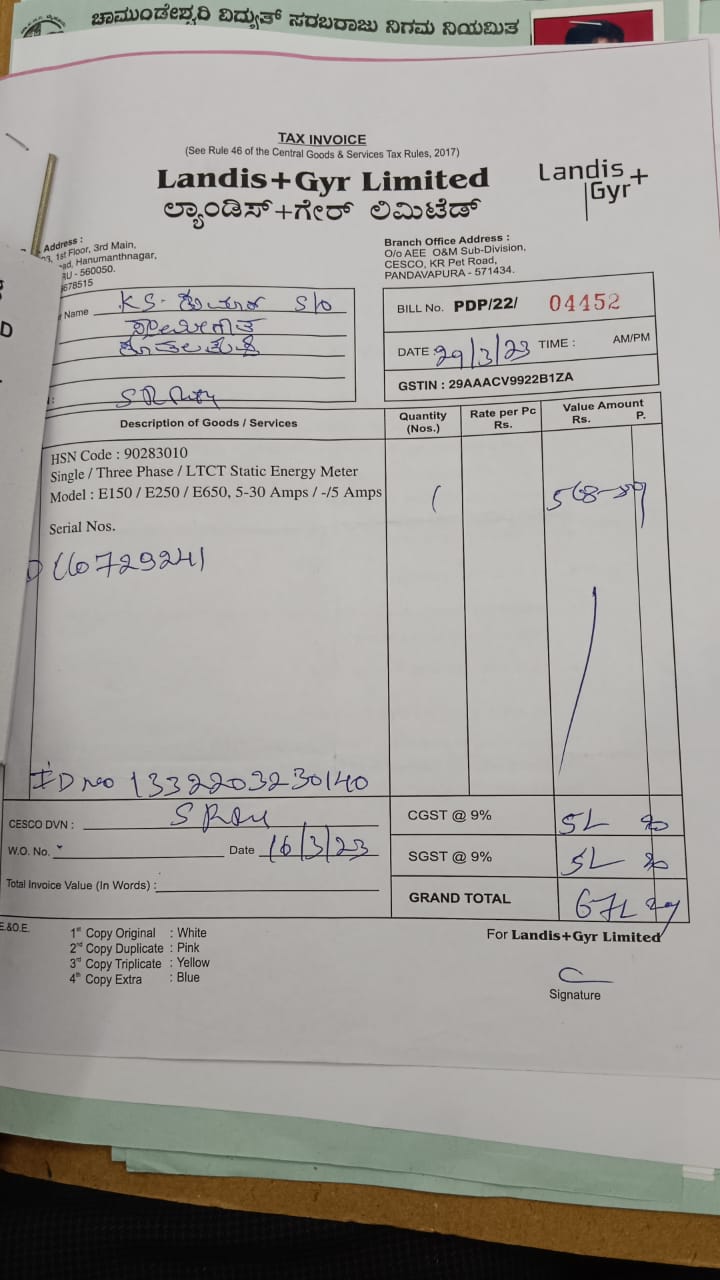 ಚಾಮುಂಡೇಶ್ವರಿ ವಿದ್ಯುತ್ ಸರಬರಾಜು ನಿಗಮ ನಿಯಮಿತ
TAX INVOICE
(See Rule 46 of the Central Goods & Services Tax Rules, 2017)
Landis+Gyr Limited
ಲ್ಯಾಂಡಿಸ್+ಗೇರ್ ಲಿಮಿಟೆಡ್
Landis+
Gyr
Address :
1st Floor, 3rd Main,
Hanumanthnagar,
- 560050.
678515
Branch Office Address :
O/o AEE O&M Sub-Division,
CESCO, KR Pet Road,
PANDAVAPURA - 571434.
Name KS- S/o
BILL No. PDP/22/ 04452
DATE 29/3/23 TIME : AM/PM
GSTIN : 29AAACV9922B1ZA
Description of Goods / Services
Quantity (Nos.)
Rate per Pc Rs.
Value Amount Rs. P.
HSN Code : 90283010
Single / Three Phase / LTCT Static Energy Meter
Model : E150 / E250 / E650, 5-30 Amps / -/5 Amps 1
Serial Nos.
ID no 1332203230140
CESCO DVN :
W.O. No. Date 16/3/23
Total Invoice Value (In Words) :
CGST @ 9%
SGST @ 9%
GRAND TOTAL
E.&O.E.
1st Copy Original : White
2nd Copy Duplicate : Pink
3rd Copy Triplicate : Yellow
4th Copy Extra : Blue
For Landis+Gyr Limited
Signature